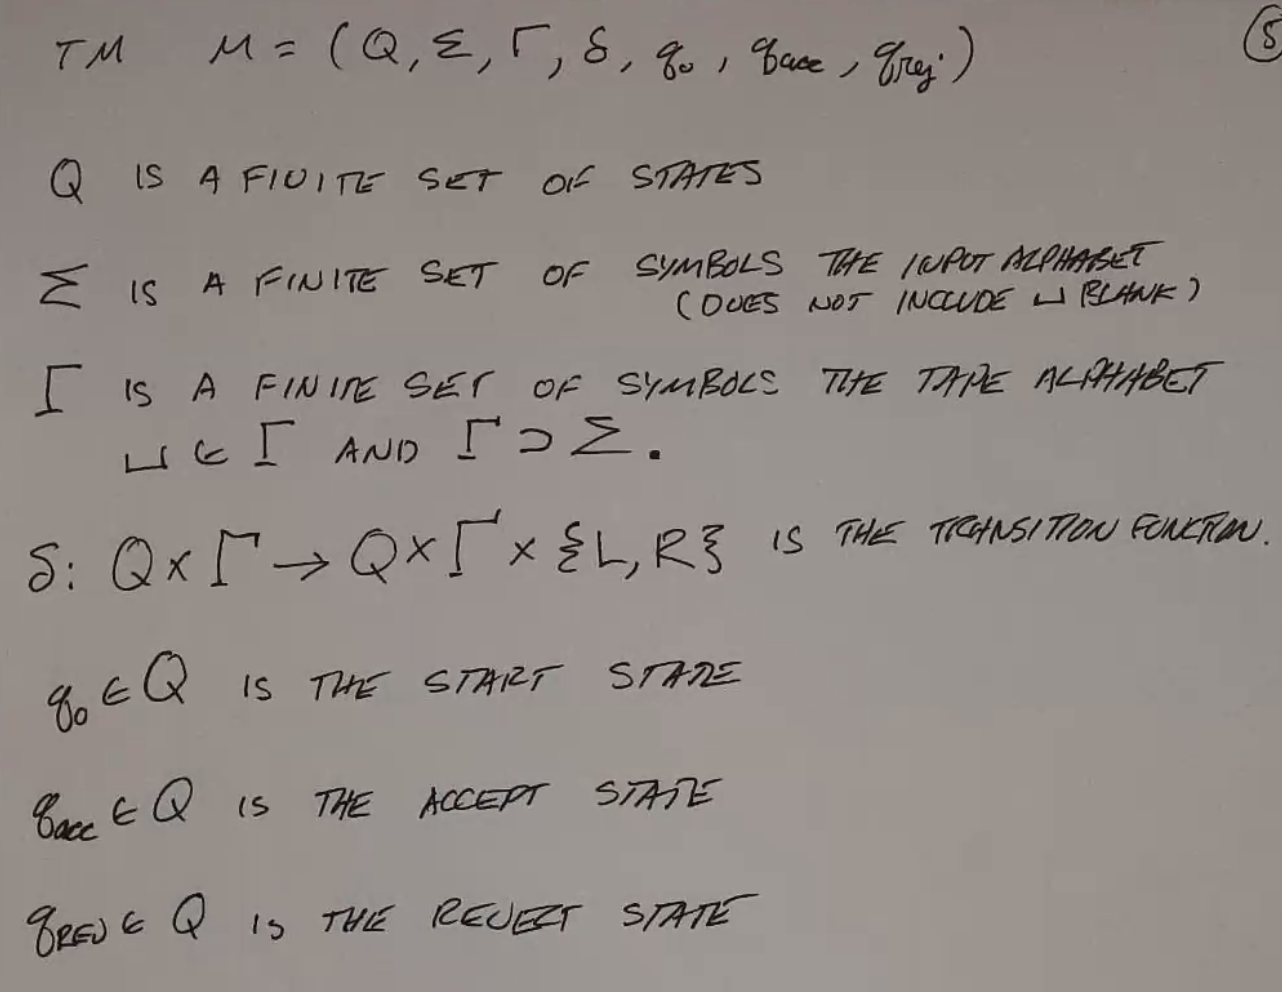 TM M = (Q, Σ, Γ, δ, q₀, q_acc, q_rej.) ⑤
Q IS A FINITE SET OF STATES
Σ IS A FINITE SET OF SYMBOLS THE INPUT ALPHABET
(DOES NOT INCLUDE ⊔ BLANK)
Γ IS A FINITE SET OF SYMBOLS THE TAPE ALPHABET
⊔ ∈ Γ AND Γ ⊃ Σ.
δ: Q × Γ → Q × Γ × {L, R} IS THE TRANSITION FUNCTION.
q₀ ∈ Q IS THE START STATE
q_acc ∈ Q IS THE ACCEPT STATE
q_REJ ∈ Q IS THE REJECT STATE